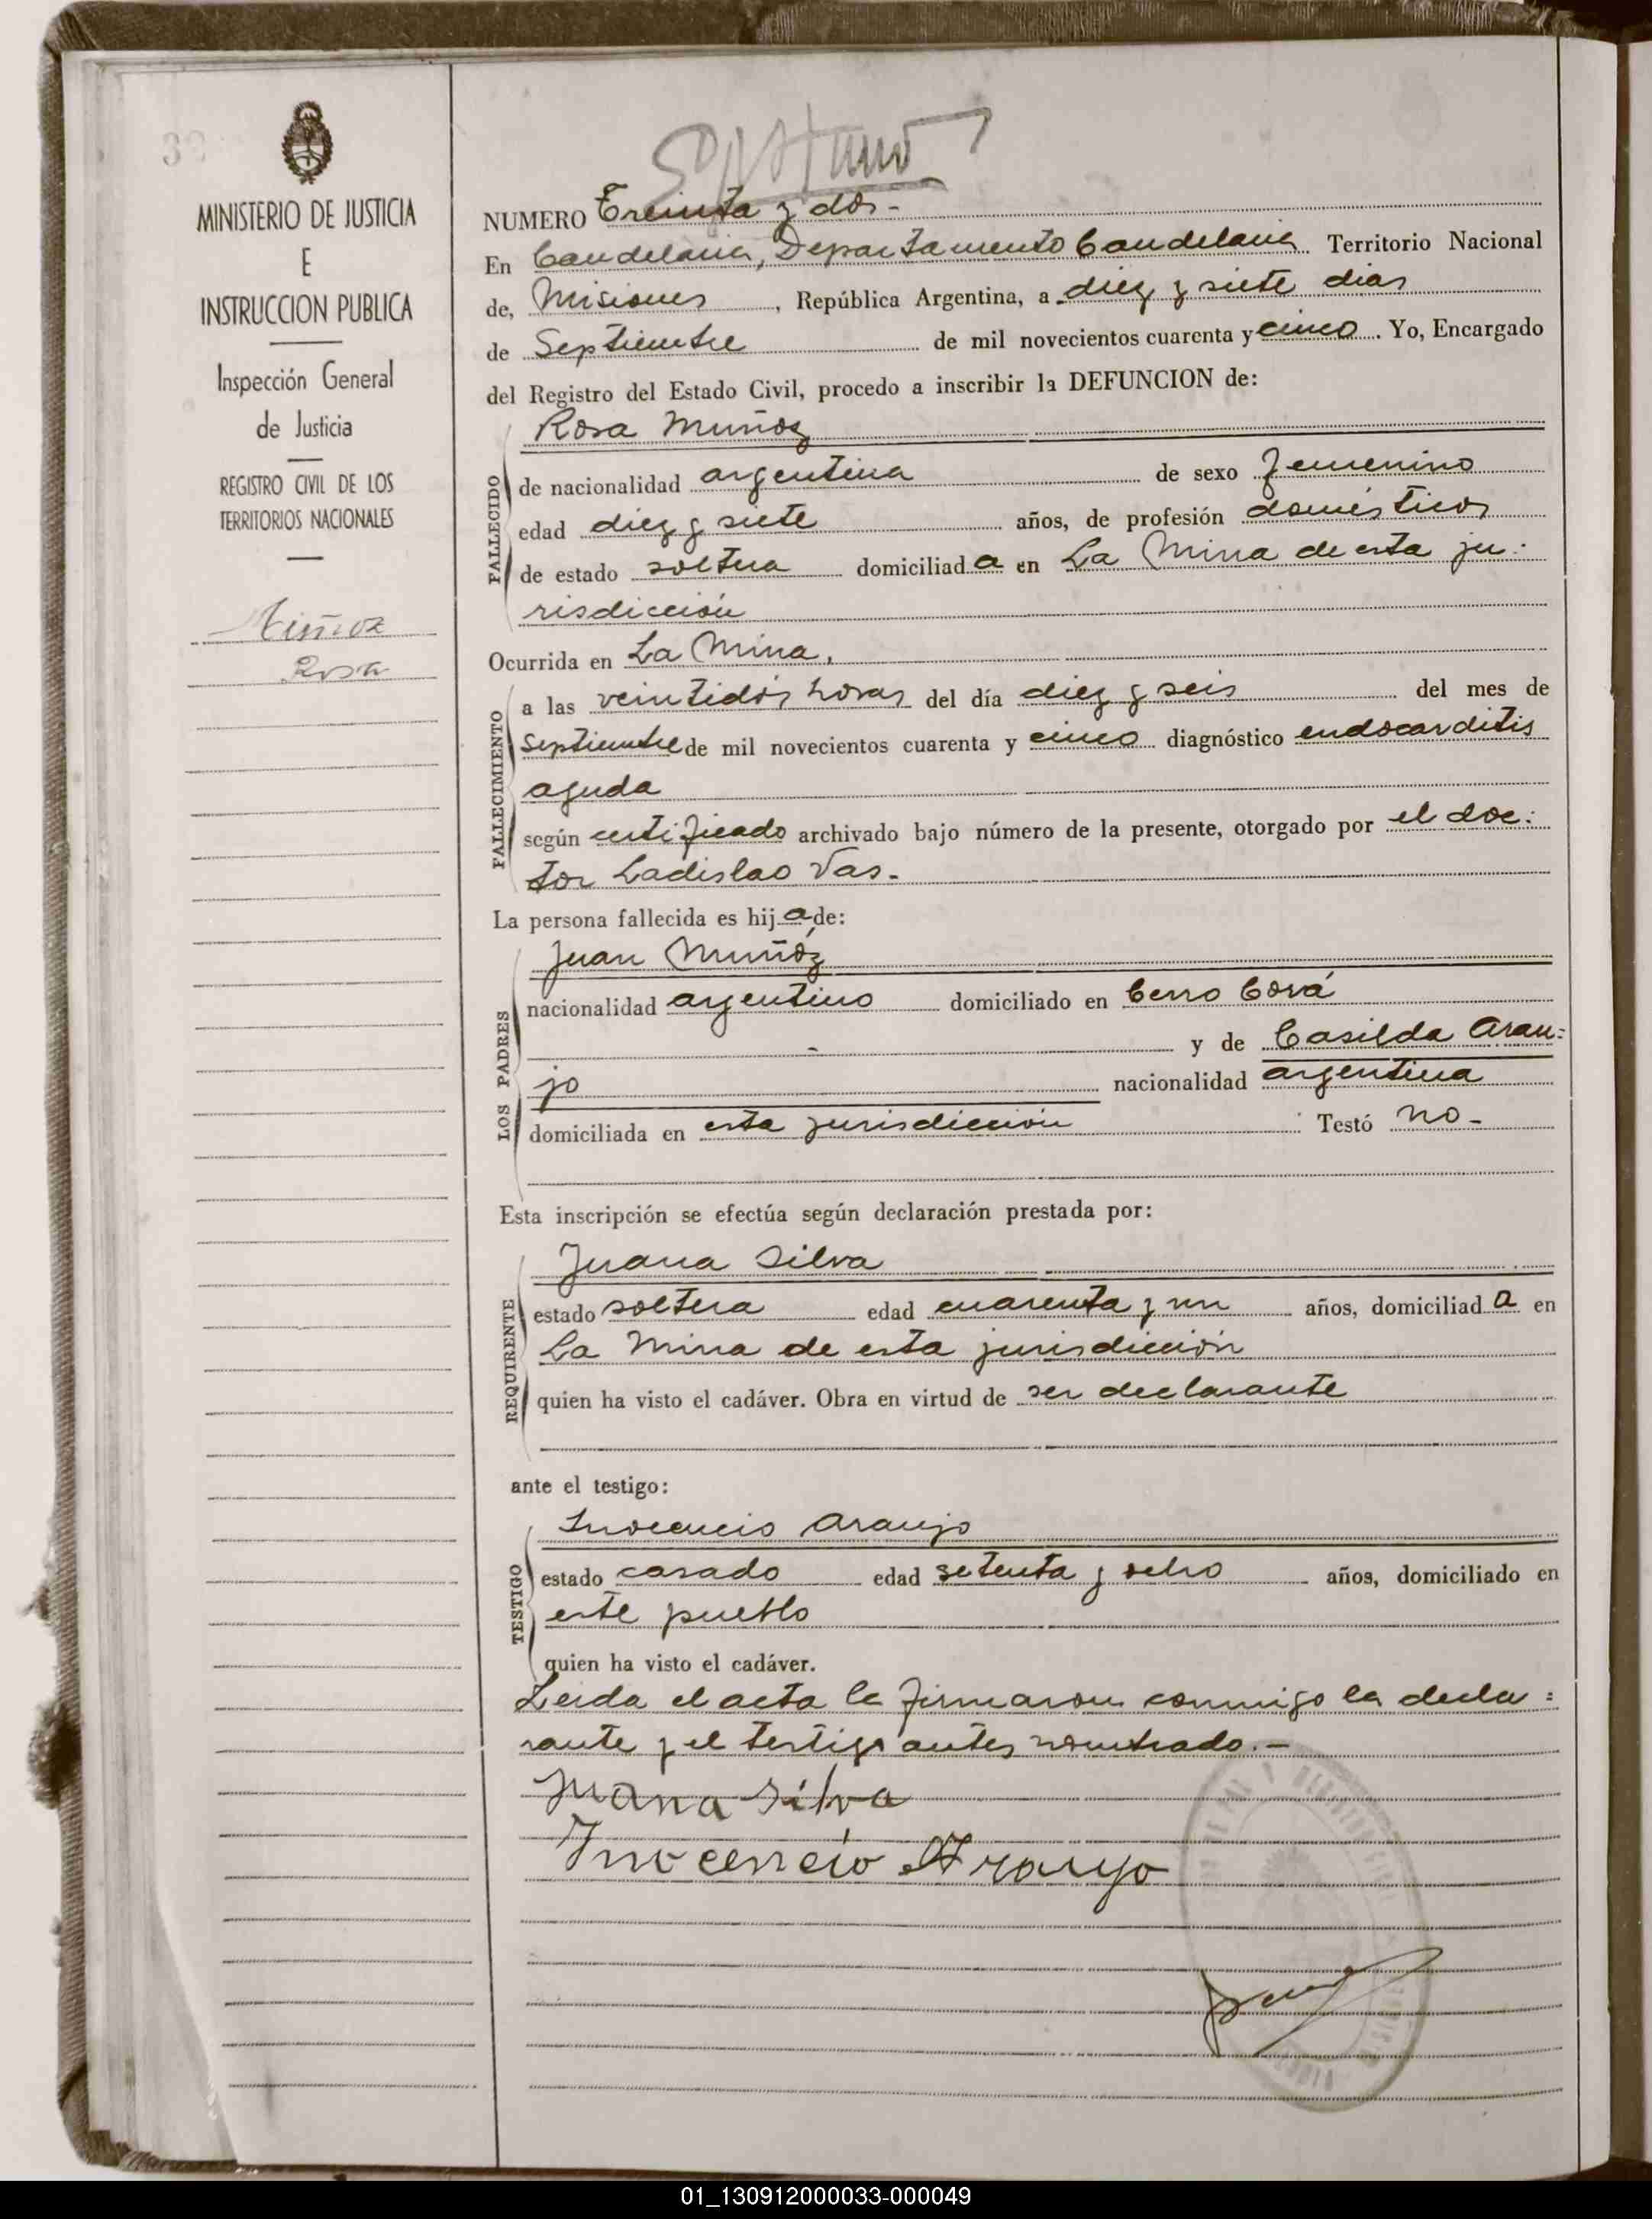 MINISTERIO DE JUSTICIA
E
INSTRUCCION PUBLICA
Inspección General
de Justicia
REGISTRO CIVIL DE LOS
TERRITORIOS NACIONALES
Muñoz
Rosa
NUMERO Treinta y dos.-
En Candelaria, Departamento Candelaria Territorio Nacional
de, Misiones, República Argentina, a diez y siete dias
de Septiembre de mil novecientos cuarenta y cinco. Yo, Encargado
del Registro del Estado Civil, procedo a inscribir la DEFUNCION de:
FALLECIDO
Rosa Muñoz
de nacionalidad argentina de sexo femenino
edad diez y siete años, de profesión domésticos
de estado soltera domiciliada en La Mina de esta ju:
risdicción
Ocurrida en La Mina,
FALLECIMIENTO
a las veintidós horas del día diez y seis del mes de
Septiembre de mil novecientos cuarenta y cinco diagnóstico endocarditis
aguda
según certificado archivado bajo número de la presente, otorgado por el doc:
tor Ladislao Vas.-
La persona fallecida es hija de:
LOS PADRES
Juan Muñóz
nacionalidad argentino domiciliado en Cerro Corá
- y de Casilda Arau=
jo nacionalidad argentina
domiciliada en esta jurisdicción Testó no.-
Esta inscripción se efectúa según declaración prestada por:
REQUIRENTE
Juana Silva
estado soltera edad cuarenta y un años, domiciliada en
La Mina de esta jurisdicción
quien ha visto el cadáver. Obra en virtud de ser declarante
ante el testigo:
TESTIGO
Inocencio Araujo
estado casado edad setenta y ocho años, domiciliado en
este pueblo
quien ha visto el cadáver.
Leida el acta la firmaron conmigo la decla=
rante y el testigo antes nombrado.-
Juana Silva
Inocencio Araujo
01_130912000033-000049